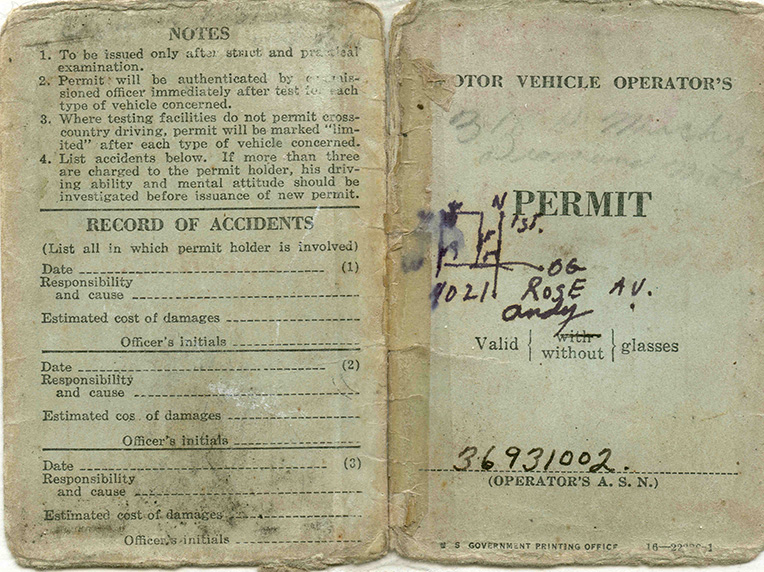 NOTES
1. To be issued only after strict and practical
examination.
2. Permit will be authenticated by commis-
sioned officer immediately after test for each
type of vehicle concerned.
3. Where testing facilities do not permit cross-
country driving, permit will be marked "lim-
ited" after each type of vehicle concerned.
4. List accidents below. If more than three
are charged to the permit holder, his driv-
ing ability and mental attitude should be
investigated before issuance of new permit.
RECORD OF ACCIDENTS
(List all in which permit holder is involved)
Date (1)
Responsibility
and cause
Estimated cost of damages
Officer's initials
Date (2)
Responsibility
and cause
Estimated cos of damages
Officer's initials
Date (3)
Responsibility
and cause
Estimated cost of damages
Officer's initials
MOTOR VEHICLE OPERATOR'S
PERMIT
N
1st.
OG
1021 ROSE AV.
Andy
Valid { with without } glasses
36931002.
(OPERATOR'S A. S. N.)
U S GOVERNMENT PRINTING OFFICE